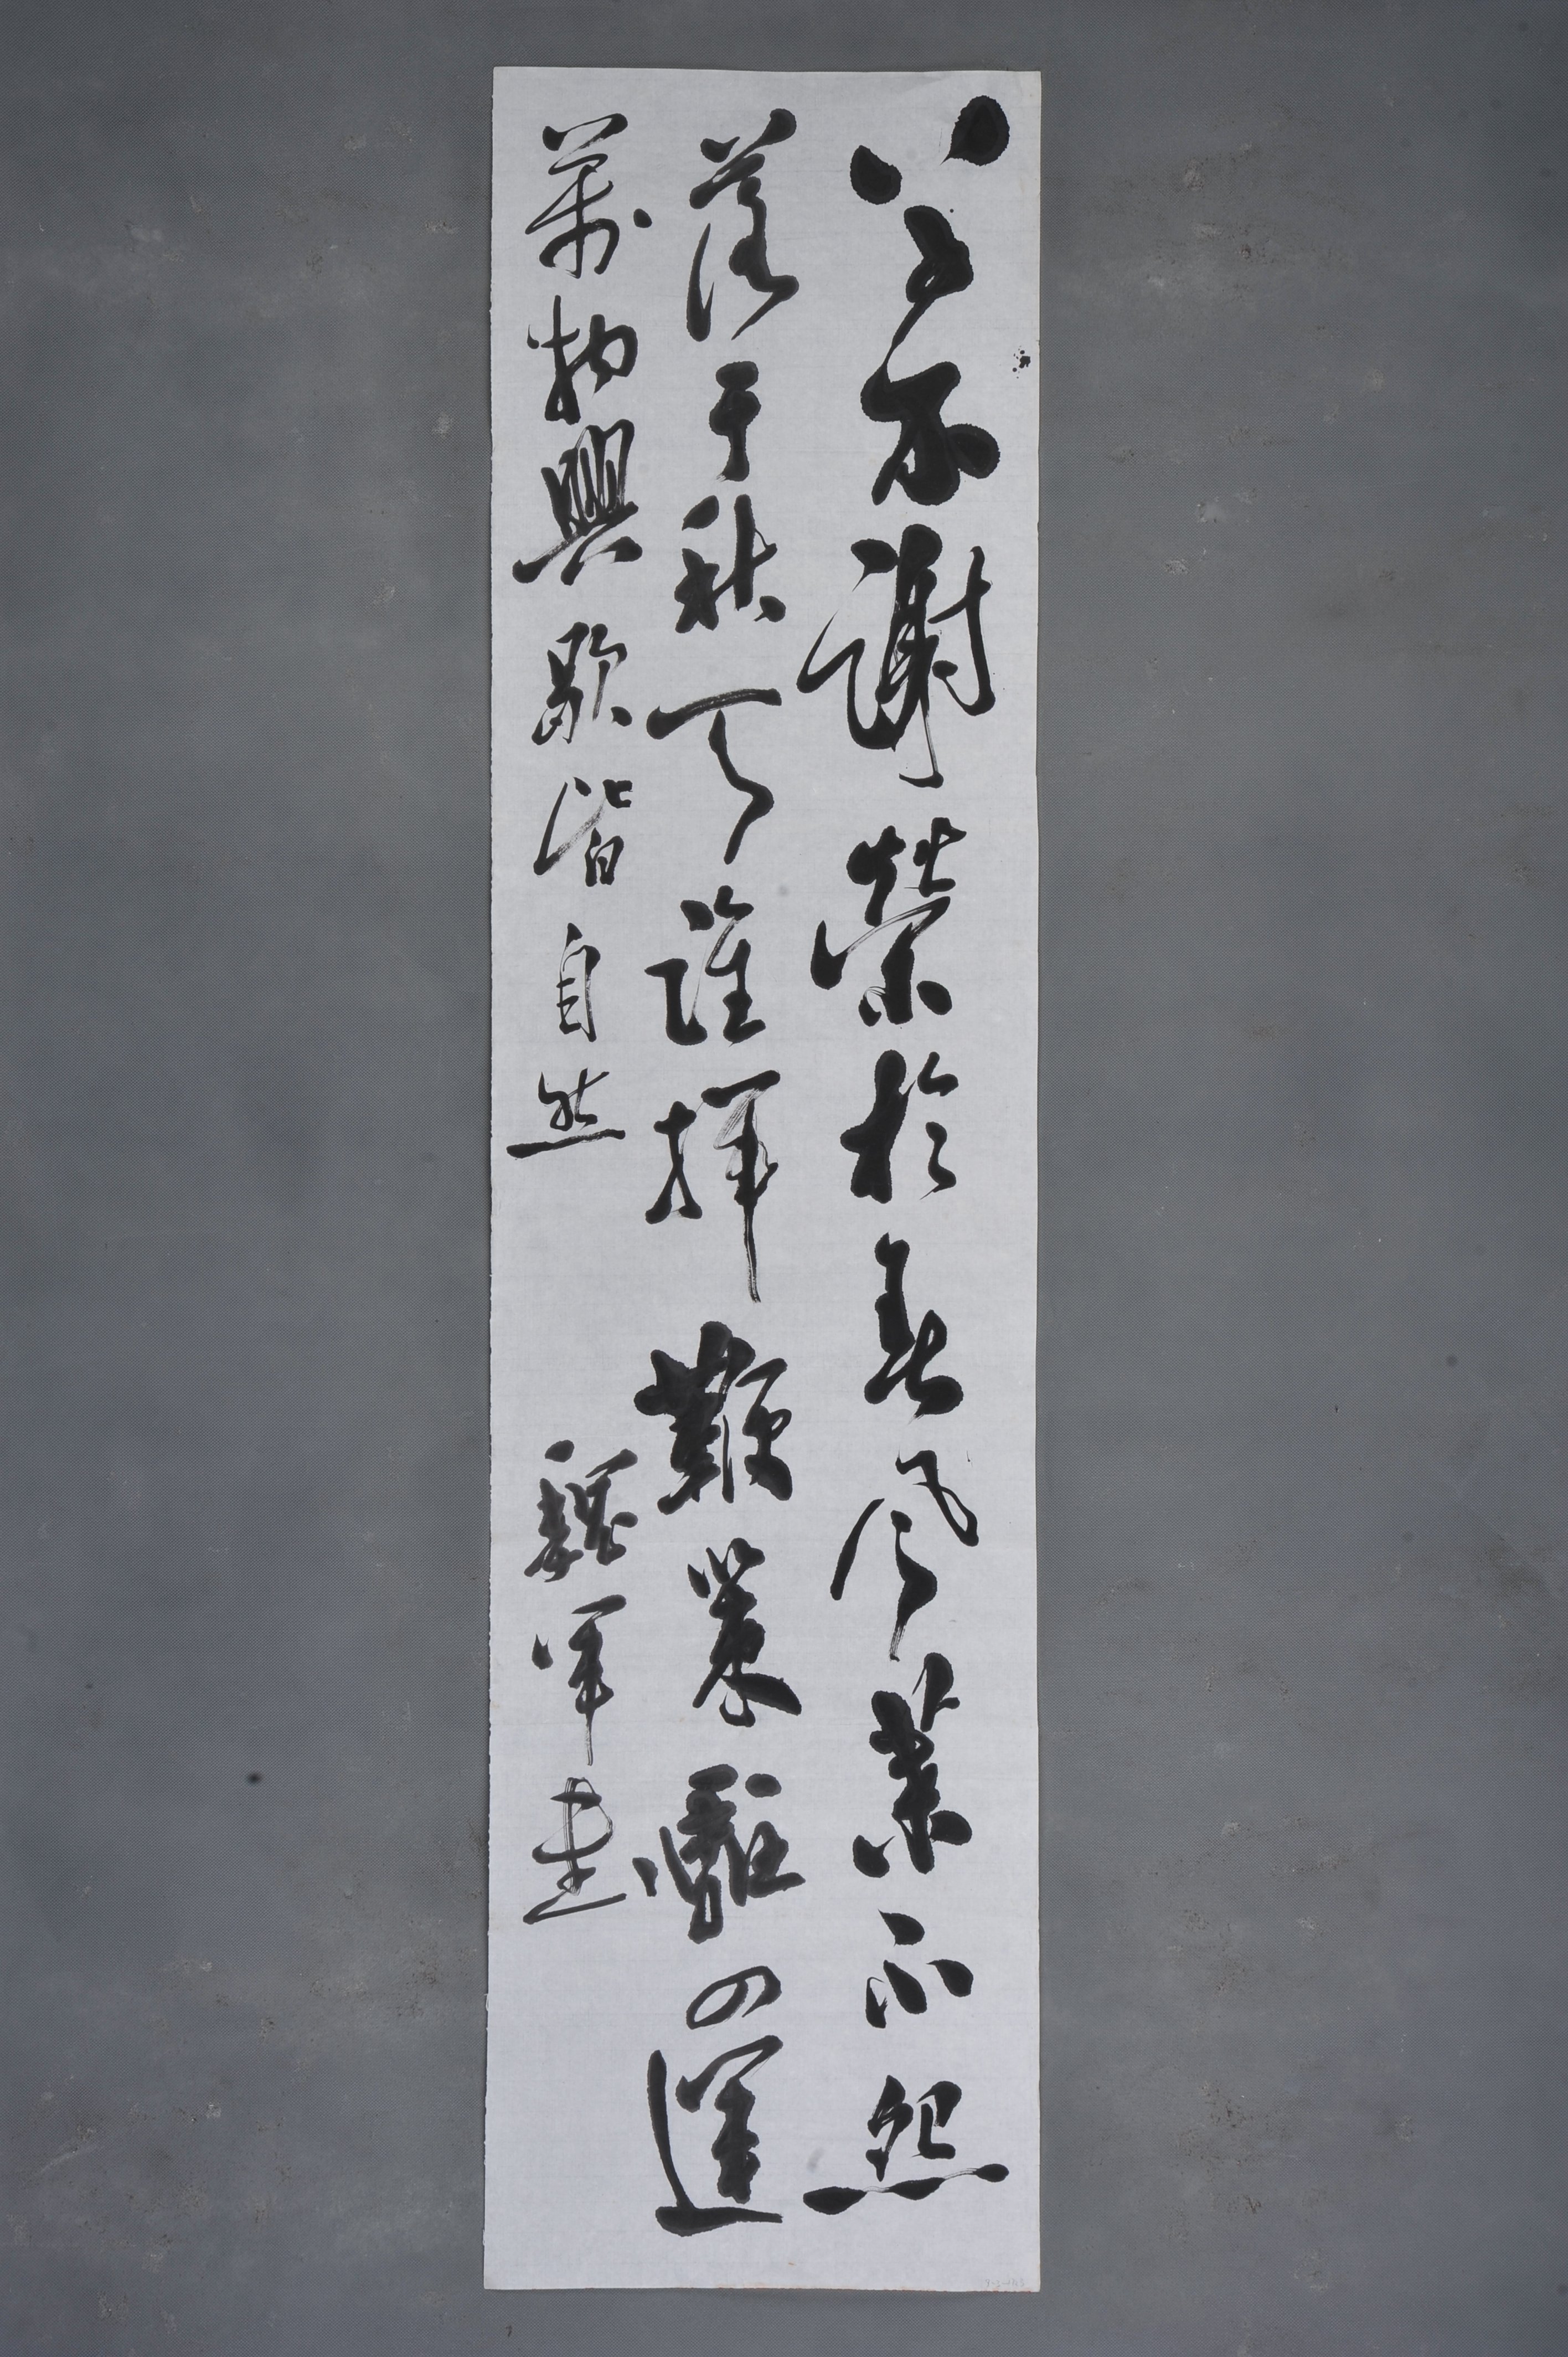 草不謝榮於春風葉不怨
落于秋天誰揮鞭策驅四運
萬物興歇皆自然 魏軍書